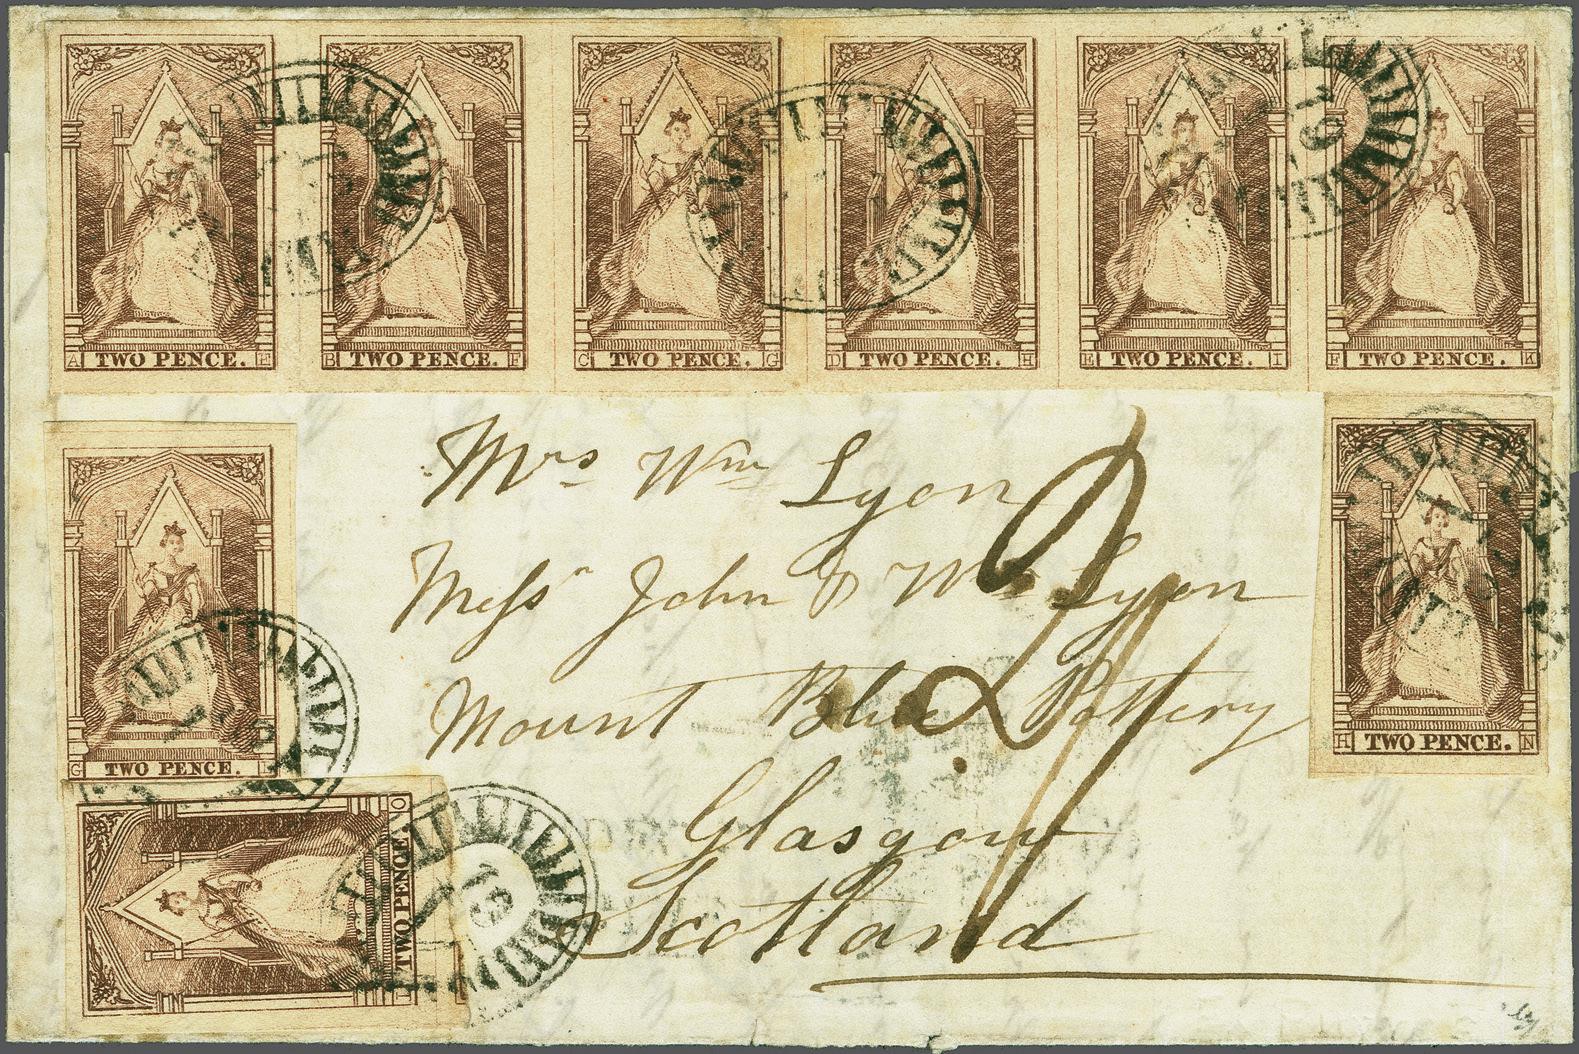 A TWO PENCE. E
B TWO PENCE. F
C TWO PENCE. G
D TWO PENCE. H
E TWO PENCE. I
F TWO PENCE. K
Mrs Wm Lyon
Messrs John & Wm Lyon
Mount Blue Pottery
Glasgow
Scotland
G TWO PENCE. L
H TWO PENCE. N
I TWO PENCE. O
19